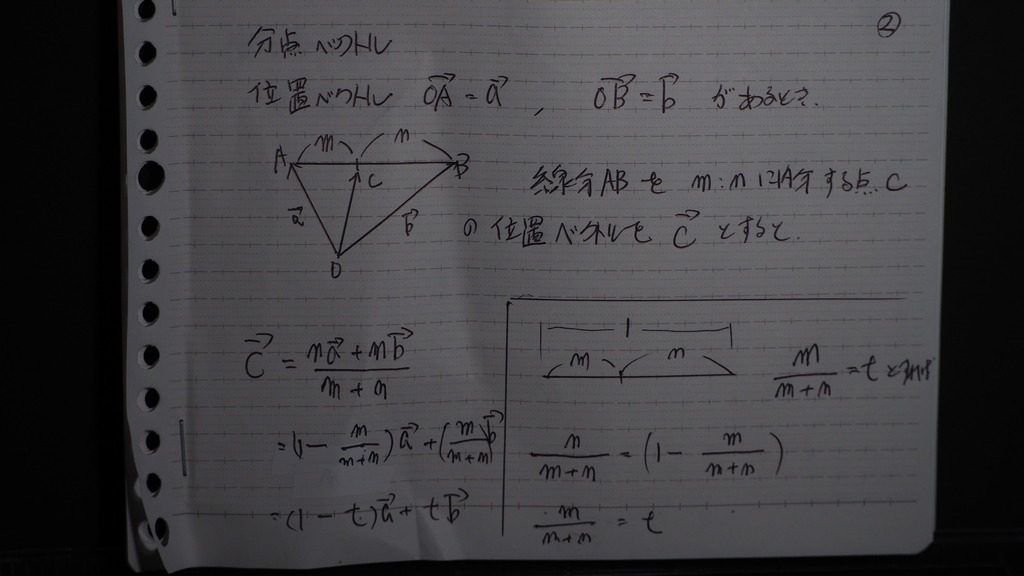 ②
分点ベクトル
位置ベクトル OA→ = a→ , OB→ = b→ があるとき.
A m n B
C
a→ b→
O
線分ABを m:nに内分する点 C
の位置ベクトルを c→ とすると.
c→ = (na→ + mb→)/(m+n)
= (1 - m/(m+n))a→ + (m/(m+n))b→
= (1 - t)a→ + tb→
1
m n
m/(m+n) = t と
n/(m+n) = (1 - m/(m+n))
m/(m+n) = t